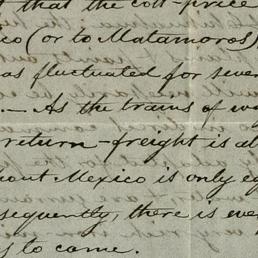 t that the cott-price
ico (or to Matamoros),
as fluctuated for seve
. — As the trains of wa
return-freight is al
hout Mexico is only eq
sequently, there is eve
s to come.